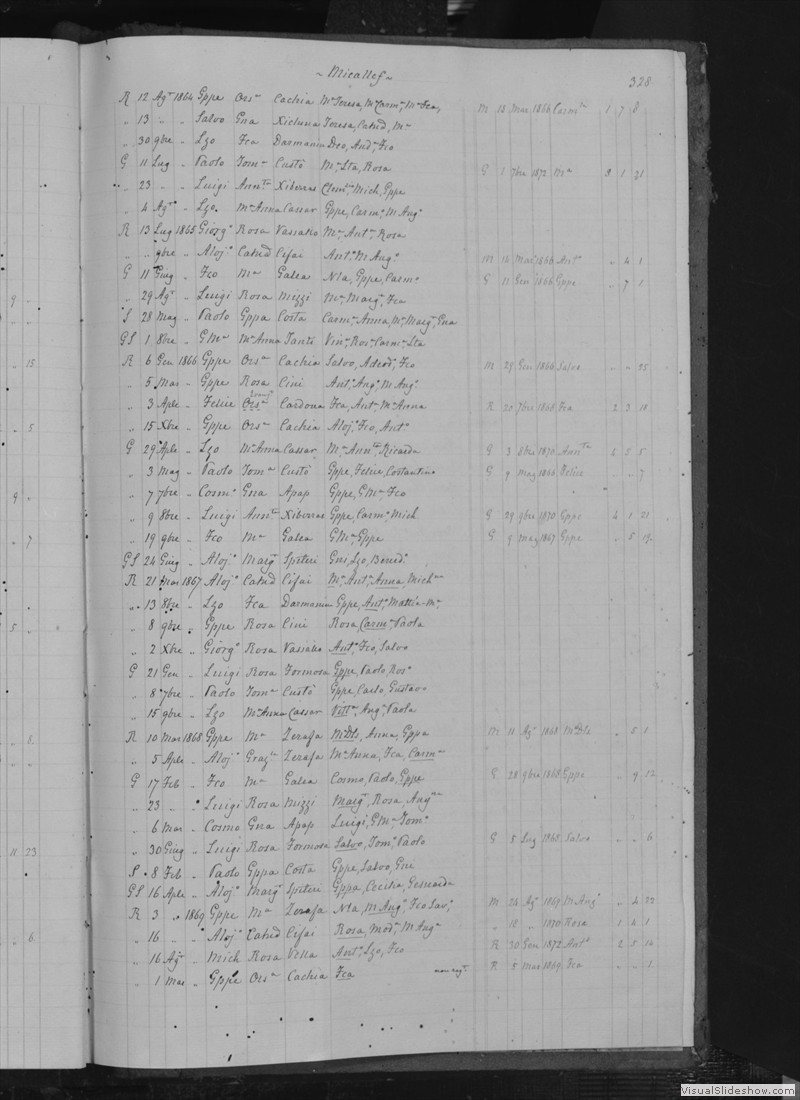 ~ Micallef ~
328
R 12 Agto 1864 Gppe Orsa Cachia Ma Teresa, Ma Carma, Ma Fca, M 12 Mar 1866 Carmla 1 7 8
„ 13 „ „ Salvo Gna Xicluna Teresa, Catnd, Ma
„ 30 9bre „ Lzo Fca Darmanin Deo, Anda, Fco
G 11 Lug „ Paolo Toma Custò Ma Sta, Rosa G 1 7bre 1872 Ma 8 1 21
„ 23 „ „ Luigi Annta Xiberras Clema, Mich, Gppe
„ 4 Agto „ Lzo Ma Anna Cassar Gppe, Carmo, M Anga
R 13 Lug 1865 Giorgo Rosa Vassallo Ma, Anta, Rosa
„ „ 9bre „ Alojo Catnd Cifai Anto, M Anga M 14 Mar 1866 Anto „ 4 1
G 11 Giug „ Fco Ma Galea Nla, Gppe, Carmo G 11 Gen 1866 Gppe „ 7 1
„ 29 Agto „ Luigi Rosa Mizzi Ma, Marga, Fca
S 28 Mag „ Paolo Gppa Costa Carma, Anna, Ma Marga, Gna
GS 1 8bre „ G Ma Ma Anna Tanti Vina, Rosa, Carma, Sta
R 6 Gen 1866 Gppe Orsa Cachia Salvo, Adeoda, Fco M 29 Gen 1866 Salvo „ „ 23
„ 5 Mar „ Gppe Rosa Cini Anta, Anga, M Anga
„ 3 Aple „ Felice Orsa Cardona Fca, Anta, Ma Anna R 20 7bre 1868 Fca 2 3 18
„ 15 Xbre „ Gppe Orsa Cachia Alojo, Fco, Anto
G 29 Aple „ Lzo Ma Anna Cassar Ma, Annta, Ricarda G 3 8bre 1870 Annta 4 5 5
„ 3 Mag „ Paolo Toma Custò Gppe, Felice, Costantino G 9 Mag 1866 Felice „ „ 7
„ 7 7bre „ Cosmo Gna Apap Gppe, G Ma, Fco
„ 9 8bre „ Luigi Annta Xiberras Gppe, Carmo, Mich G 29 9bre 1870 Gppe 4 1 21
„ 19 9bre „ Fco Ma Galea G Ma, Gppe G 9 Mag 1867 Gppe „ 5 19
GS 24 Giug „ Alojo Marga Spiteri Gni, Lzo, Bened
R 21 Mar 1867 Alojo Catnd Cifai Ma, Anta, Anna, Michna
„ 13 8bre „ Lzo Fca Darmanin Gppe, Anto, Mattia-Ma
„ 8 9bre „ Gppe Rosa Cini Rosa, Carma, Paola
„ 2 Xbre „ Giorgo Rosa Vassallo Anto, Fco, Salvo
G 21 Gen „ Luigi Rosa Formosa Gppe, Paolo, Roso
„ 8 7bre „ Paolo Toma Custò Gppe, Carlo, Gustavo
„ 15 9bre „ Lzo Ma Anna Cassar Vitta, Anga, Paola
R 10 Mar 1868 Gppe Ma Zerafa M Dls, Anna, Gppa M 11 Ago 1868 Ma Dls „ 5 1
„ 5 Aple „ Alojo Grazla Zerafa Ma Anna, Fca, Carma
G 17 Feb „ Fco Ma Galea Cosmo, Paolo, Gppe G 28 9bre 1868 Gppe „ 9 12
„ 23 „ „ Luigi Rosa Mizzi Marga, Rosa, Angna
„ 6 Mar „ Cosmo Gna Apap Luigi, G Ma, Tomo
„ 30 Giug „ Luigi Rosa Formosa Salvo, Tomo, Paolo G 5 Lug 1868 Salvo „ „ 6
S 8 Feb „ Paolo Gppa Costa Gppe, Salvo, Gni
GS 16 Aple „ Alojo Marga Spiteri Gppa, Cecilia, Gesualda
R 3 „ 1869 Gppe Ma Zerafa Nla, M Anga, Fca Sava M 24 Ago 1869 M Anga „ 4 22
„ 16 „ „ Alojo Catnd Cifai Rosa, Moda, M Anga „ 18 „ 1870 Rosa 1 4 1
„ 16 Ago „ Mich Rosa Vella Anto, Lzo, Fco R 30 Gen 1872 Anto 2 5 14
„ 1 Mar „ Gppe Orsa Cachia Fca R 5 Mar 1869 Fca „ „ 1
VisualSlideshow.com